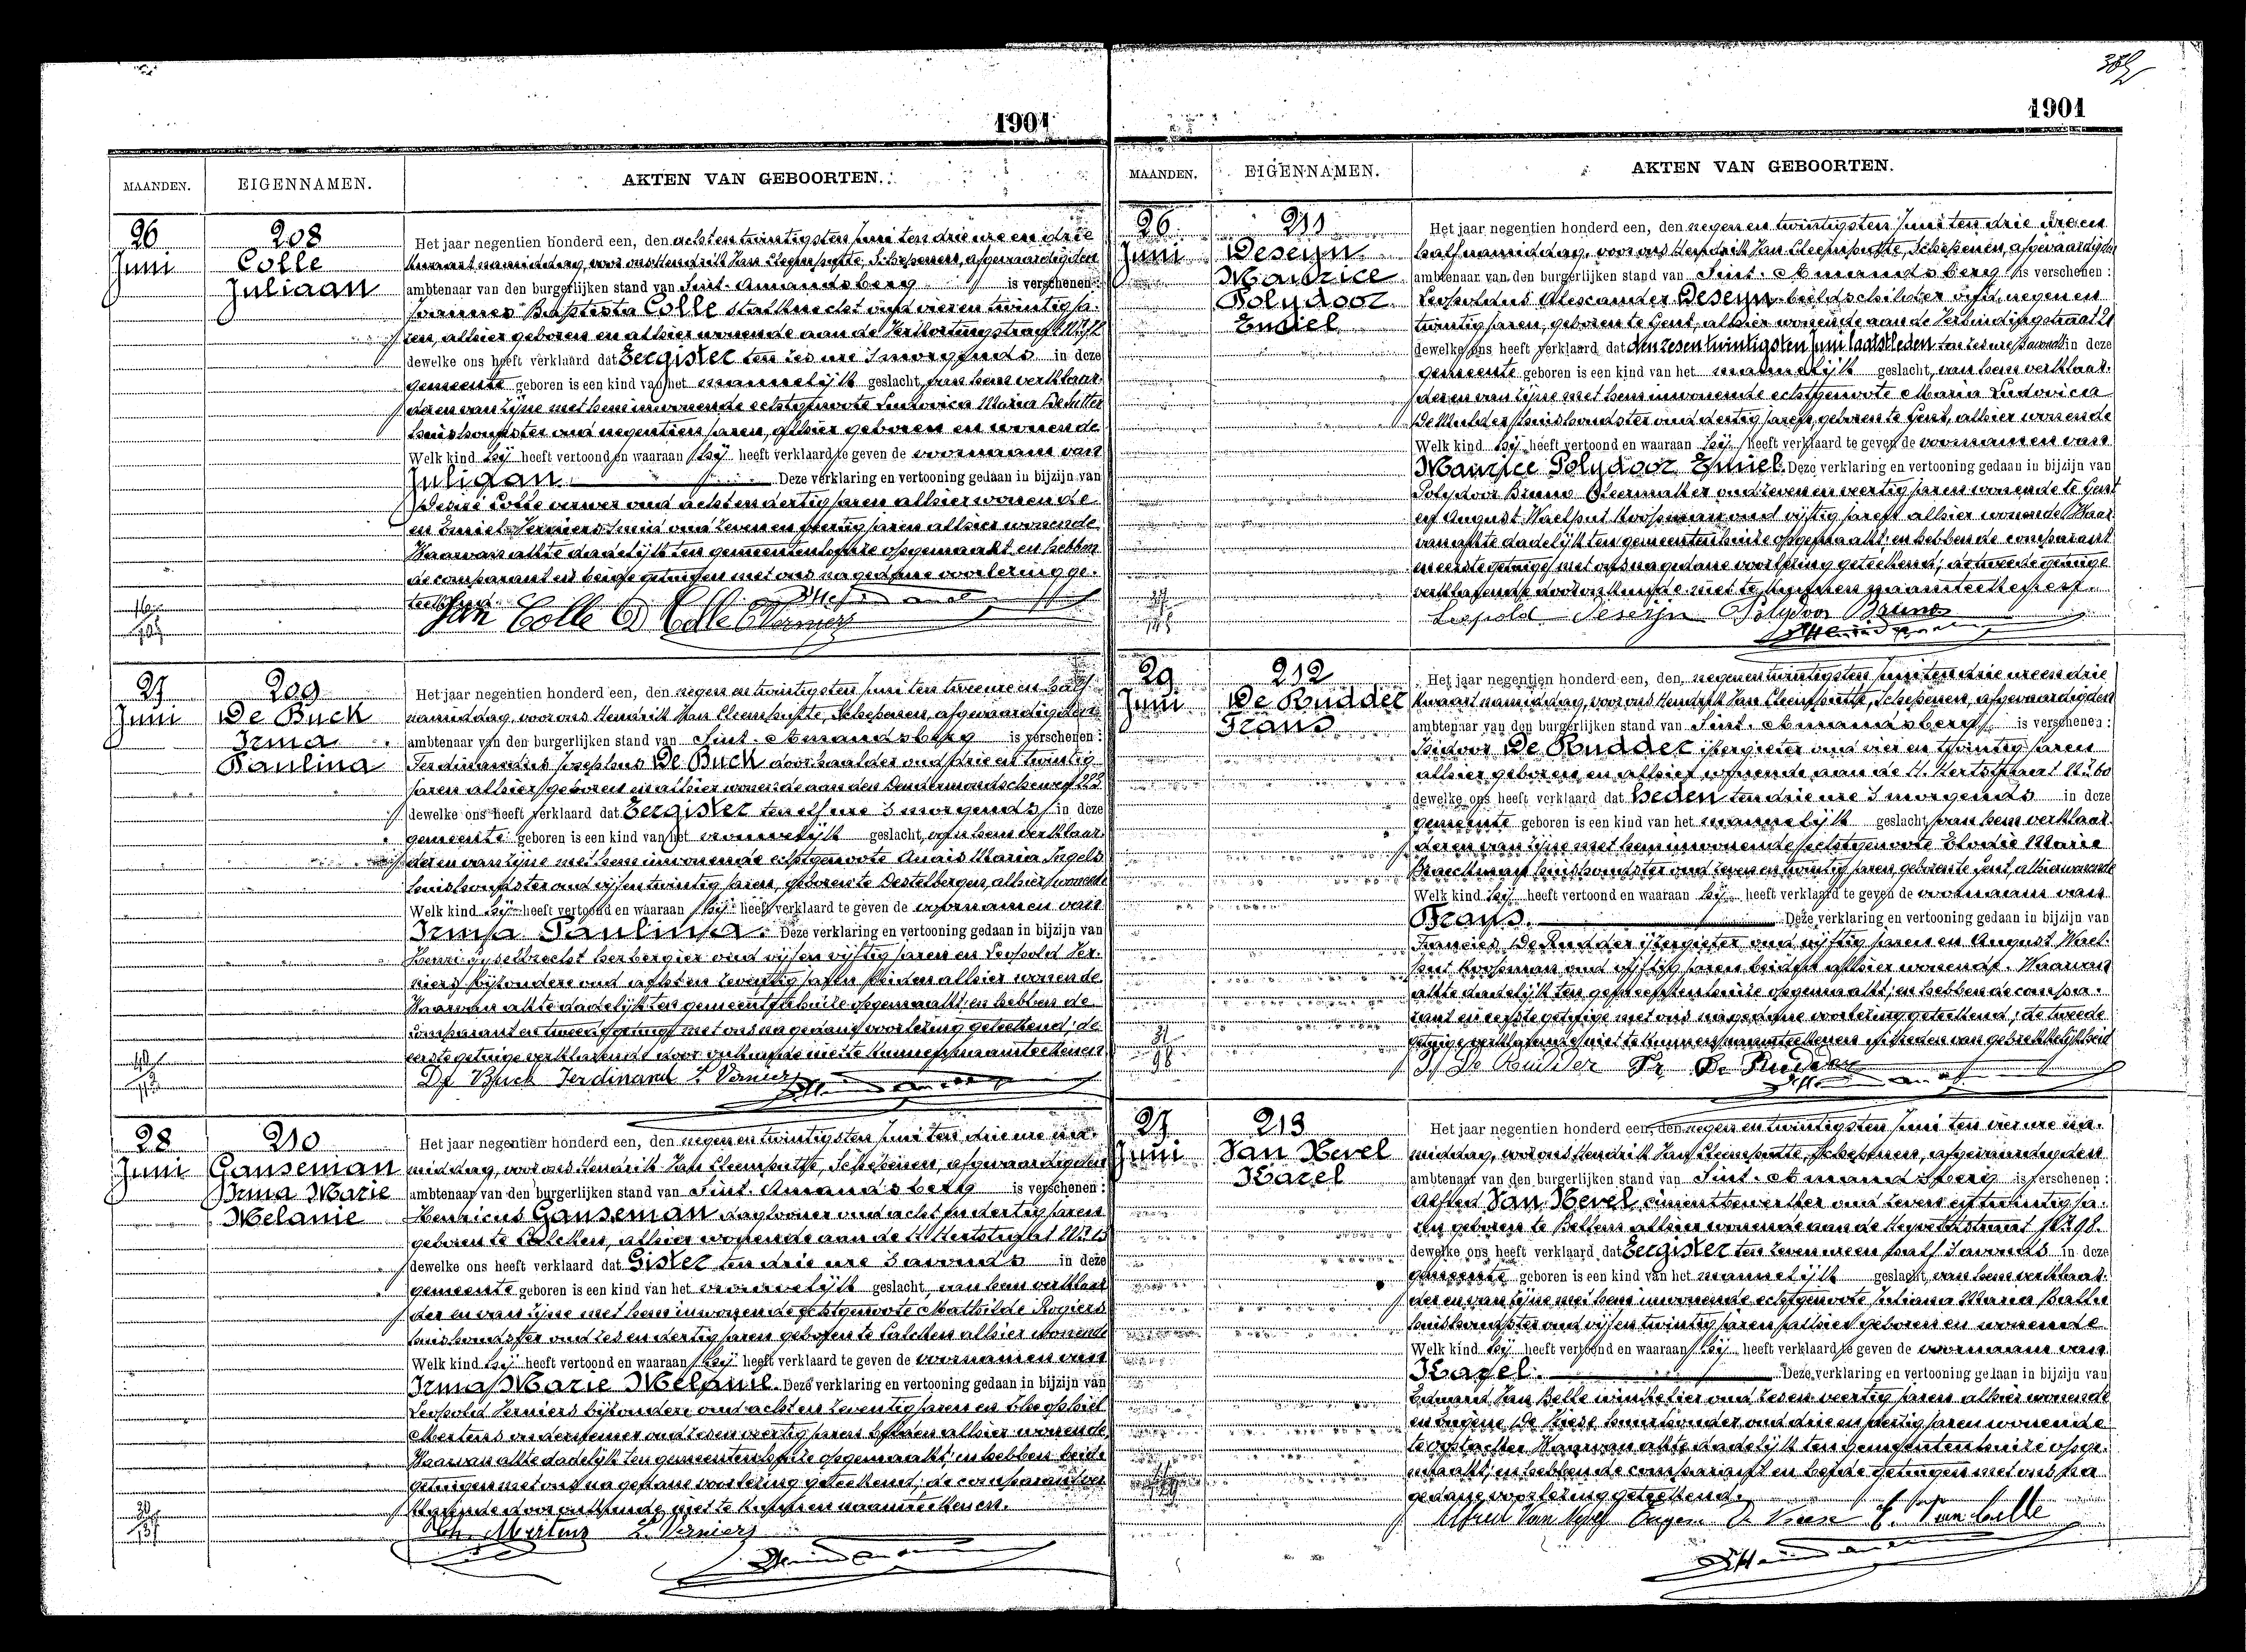 1901
MAANDEN. EIGENNAMEN. AKTEN VAN GEBOORTEN.
26 Juni
208
Colle
Juliaan
Het jaar negentien honderd een, den achten twintigsten Juni ten drie ure en drie
kwaart namiddag, voor ons Hendrik Van Cleemputte, Schepenen, afgevaardigden
ambtenaar van den burgerlijken stand van Sint-Amandsberg is verschenen:
Joannes Baptista Colle stalknecht oud vier en twintig ja-
ren, alhier geboren en alhier wonende aan de
dewelke ons heeft verklaard dat Eergister ten zes ure 's morgends in deze
gemeente geboren is een kind van het mannelijk geslacht, van hem verklaar-
der en van zijne met hem inwonende echtgenoote Ludovica Maria De Sutter
huishoudster oud negentien jaren, alhier geboren en wonende
Welk kind hij heeft vertoond en waaraan hij heeft verklaard te geven de voornaam van
Juliaan. Deze verklaring en vertooning gedaan in bijzijn van
Desiré Colle verwer oud acht en dertig jaren alhier wonende
en Emiel Verniers Smid oud zeven en jaren alhier wonende
Waarvan akte dadelijk ten gemeentenhuize opgemaakt en hebben
de comparant en beide getuigen met ons na gedane voorlezing ge-
teekend.
Jan Colle D Colle E Verniers
27 Juni
209
De Buck
Irma
Paulina
Het jaar negentien honderd een, den negen en twintigsten Juni ten twee ure en half
namiddag, voor ons Hendrik Van Cleemputte, Schepenen, afgevaardigden
ambtenaar van den burgerlijken stand van Sint-Amandsberg is verschenen:
Ferdinandus Josephus De Buck oud drie en twintig
jaren alhier geboren en alhier wonende aan den Dendermondschenweg 223
dewelke ons heeft verklaard dat Eergister ten elf ure 's morgends in deze
gemeente geboren is een kind van het vrouwelijk geslacht, van hem verklaar-
der en van zijne met hem inwonende echtgenoote Anais Maria Ingels
huishoudster oud vijf en twintig jaren, geboren te Destelbergen, alhier wonende
Welk kind hij heeft vertoond en waaraan hij heeft verklaard te geven de voornamen van
Irma Paulina. Deze verklaring en vertooning gedaan in bijzijn van
Henri Gyselbrecht herbergier oud vijf en vijftig jaren en Leopold Ver-
niers bijzondere oud acht en zeventig jaren beiden alhier wonende
Waarvan akte dadelijk ten gemeentenhuize opgemaakt en hebben de
comparant en tweede getuige met ons na gedane voorlezing geteekend; de
eerste getuige verklarende door onkunde niet te kunnen naamteekenen
De Buck Ferdinand L Verniers
28 Juni
210
Ganseman
Irma Marie
Melanie
Het jaar negentien honderd een, den negen en twintigsten Juni ten drie ure na-
middag, voor ons Hendrik Van Cleemputte, Schepenen, afgevaardigden
ambtenaar van den burgerlijken stand van Sint-Amandsberg is verschenen:
Henricus Ganseman daglooner oud acht en dertig jaren
geboren te Calcken, alhier wonende aan de
dewelke ons heeft verklaard dat Gister ten drie ure 's avonds in deze
gemeente geboren is een kind van het vrouwelijk geslacht, van hem verklaar-
der en van zijne met hem inwonende echtgenoote Mathilde Rogiers
huishoudster oud zes en dertig jaren geboren te Calcken alhier wonende
Welk kind hij heeft vertoond en waaraan hij heeft verklaard te geven de voornamen van
Irma Marie Melanie. Deze verklaring en vertooning gedaan in bijzijn van
Leopold Verniers bijzondere oud acht en zeventig jaren en Theophiel
Mertens oud zes en veertig jaren beiden alhier wonende
Waarvan akte dadelijk ten gemeentenhuize opgemaakt; en hebben beide
getuigen met ons na gedane voorlezing geteekend; de comparant ver-
klarende door onkunde niet te kunnen naamteekenen.
Th. Mertens L Verniers
1901
MAANDEN. EIGENNAMEN. AKTEN VAN GEBOORTEN.
26 Juni
211
Deseijn
Maurice
Polydoor
Emiel
Het jaar negentien honderd een, den negen en twintigsten Juni ten drie ure en
half namiddag, voor ons Hendrik Van Cleemputte, Schepenen, afgevaardigden
ambtenaar van den burgerlijken stand van Sint-Amandsberg is verschenen:
Leopoldus Alexander Deseijn beeldschilder oud negen en
twintig jaren, geboren te Gent, alhier wonende aan de Verbindingstraat 21
dewelke ons heeft verklaard dat den zesen twintigsten Juni laatstleden ten zes ure 's avonds in deze
gemeente geboren is een kind van het mannelijk geslacht, van hem verklaar-
der en van zijne met hem inwonende echtgenoote Maria Ludovica
De Mulder huishoudster oud dertig jaren, geboren te Gent, alhier wonende
Welk kind hij heeft vertoond en waaraan hij heeft verklaard te geven de voornamen van
Maurice Polydoor Emiel. Deze verklaring en vertooning gedaan in bijzijn van
Polydoor Bruno oud zeven en veertig jaren wonende te Gent
en August Waelput koopman oud vijftig jaren alhier wonende Waar-
van akte dadelijk ten gemeentenhuize opgemaakt; en hebben de comparant
en eerste getuige met ons na gedane voorlezing geteekend; de tweede getuige
verklarende door onkunde niet te kunnen naamteekenen.
Leopold Deseijn Polydoor Bruno
29 Juni
212
De Rudder
Frans
Het jaar negentien honderd een, den negen en twintigsten Juni ten drie ure en drie
kwaart namiddag, voor ons Hendrik Van Cleemputte, Schepenen, afgevaardigden
ambtenaar van den burgerlijken stand van Sint-Amandsberg is verschenen:
Isidoor De Rudder ijzergieter oud vier en twintig jaren
alhier geboren en alhier wonende aan de
dewelke ons heeft verklaard dat Heden ten drie ure 's morgends in deze
gemeente geboren is een kind van het mannelijk geslacht, van hem verklaar-
der en van zijne met hem inwonende echtgenoote Elodie Marie
Braeckman huishoudster oud zeven en twintig jaren geboren te Gent, alhier wonende
Welk kind hij heeft vertoond en waaraan hij heeft verklaard te geven de voornaam van
Frans. Deze verklaring en vertooning gedaan in bijzijn van
Francies De Rudder ijzergieter oud vijftig jaren en August Wael-
put koopman oud vijftig jaren beiden alhier wonende. Waarvan
akte dadelijk ten gemeentenhuize opgemaakt; en hebben de compa-
rant en eerste getuige met ons na gedane voorlezing geteekend; de tweede
getuige verklarende niet te kunnen naamteekenen uit reden van gebrekkelijkheid
De Rudder Fr De Rudder
27 Juni
213
Van Hevel
Karel
Het jaar negentien honderd een, den negen en twintigsten Juni ten vier ure na-
middag, voor ons Hendrik Van Cleemputte, Schepenen, afgevaardigden
ambtenaar van den burgerlijken stand van Sint-Amandsberg is verschenen:
Alfred Van Hevel cimentbewerker oud zeven en twintig ja-
ren geboren te alhier wonende aan de
dewelke ons heeft verklaard dat Eergister ten zeven ure en half 's avonds in deze
gemeente geboren is een kind van het mannelijk geslacht, van hem verklaar-
der en van zijne met hem inwonende echtgenoote Juliana Maria
huishoudster oud vijf en twintig jaren alhier geboren en wonende
Welk kind hij heeft vertoond en waaraan hij heeft verklaard te geven de voornaam van
Karel. Deze verklaring en vertooning gedaan in bijzijn van
Edmond Van winkelier oud zes en veertig jaren alhier wonende
en Eugene huurhouder oud drie en dertig jaren wonende
te Oostacker Waarvan akte dadelijk ten gemeentenhuize opge-
maakt; en hebben de comparant en beide getuigen met ons na
gedane voorlezing geteekend.
Alfred Van Hevel